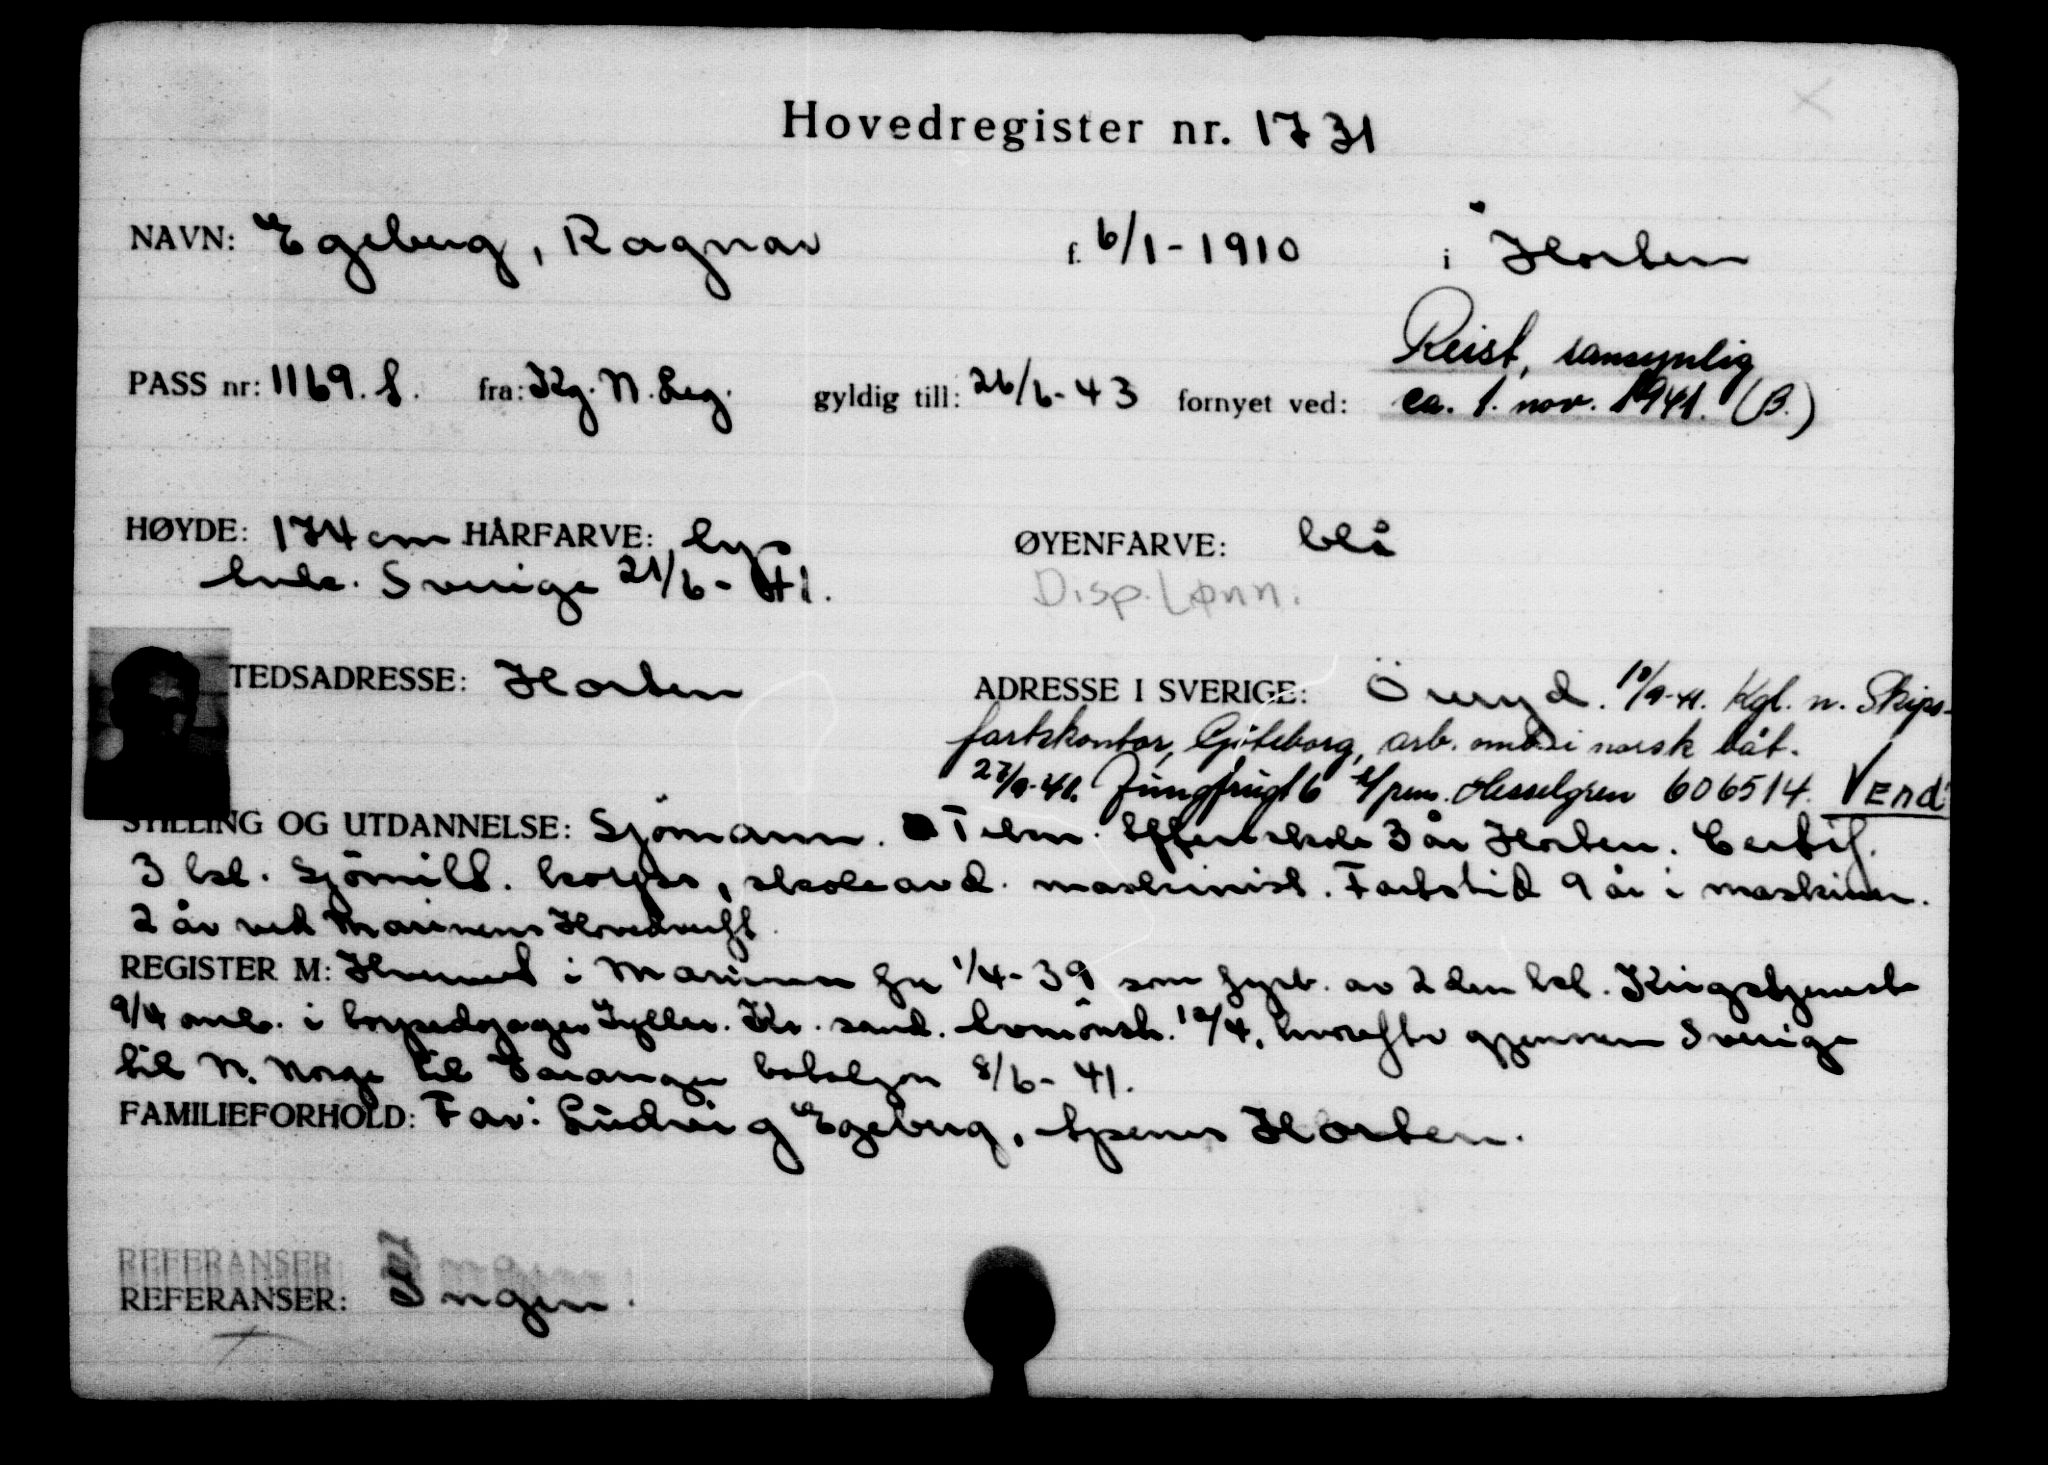 Hovedregister nr. 1731
NAVN: Egeberg, Ragnar f. 6/1-1910 i Horten
Reist, sansynlig
PASS nr: 1169. S. fra: Kg. N. Leg. gyldig till: 26/6-43 fornyet ved: ca. 1. nov. 1941. (B.)
HØYDE: 174 cm HÅRFARVE: lys ØYENFARVE: blå
Sverige 21/6-41. Disp. Lønn.
TEDSADRESSE: Horten ADRESSE I SVERIGE: Öreryd. 10/9-41. Kgl. n. Skips-
fartskontor, Göteborg, arb. omb. i norsk båt.
27/9-41. Jungfrugt 6 Hesselgren 606514. Vend
STILLING OG UTDANNELSE: Sjömann. Tekn. aftenskole 3 år Horten. Certif.
3 kl. Sjömilit. korps, skoleavd. maskinist. Fartstid 9 år i maskinen.
2 år ved Marinens Hovedverft.
REGISTER M: i Marinen fra 1/4-39 som fyrb. av 2den kl. Krigstjeneste
9/4 omb. i torpedojager Gyller. Kr. sand. 12/4, hvorefter gjennem Sverige
til N. Norge til Varanger bataljon 8/6-41.
FAMILIEFORHOLD: Far: Ludvig Egeberg, Horten.
REFERANSER
REFERANSER: Ingen.